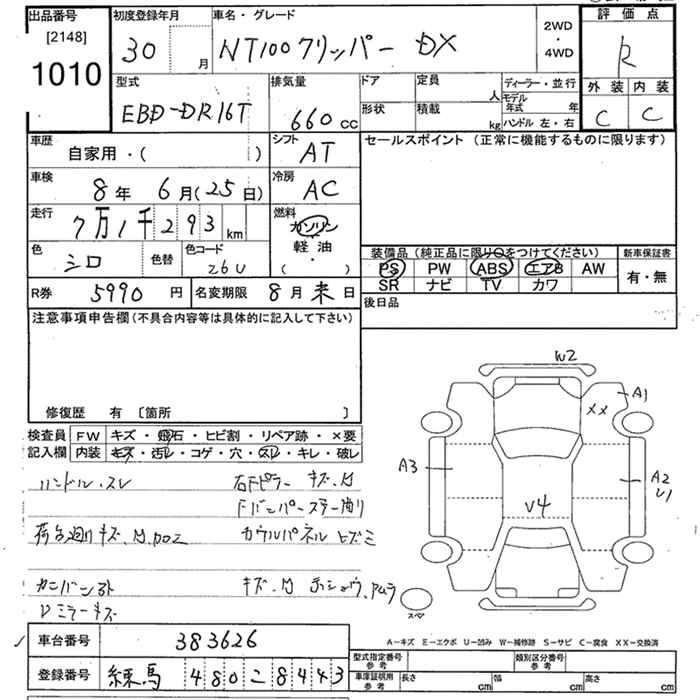 出品番号 初度登録年月 車名・グレード 2WD・4WD 評価点
[2148]
1010 30 月 NT100クリッパー DX R
型式 排気量 ドア 定員 人 ディーラー・並行 外装 内装
EBD-DR16T 660cc 形状 積載 kg モデル年式 年 ハンドル 左・右 C C
車歴 自家用・( ) シフト AT セールスポイント (正常に機能するものに限ります)
車検 8年 6月(25日) 冷房 AC
走行 7万1千293km 燃料 ガソリン
色 シロ 色替 色コード 26U 軽油・( )
装備品(純正品に限り○をつけてください) 新車保証書
PS PW ABS エアB AW 有・無
SR ナビ TV カワ
R券 5990円 名変期限 8月末日 後日品
注意事項申告欄(不具合内容等は具体的に記入して下さい)
修復歴 有 [箇所 ]
W2
A1
XX
A3
A2
U1
U4
検査員 FW キズ・飛石・ヒビ割・リペア跡・×要
記入欄 内装 キズ・汚レ・コゲ・穴・スレ・キレ・破レ
ハンドル・スレ 右Fピラー キズ、
Fバンパーステー曲り
荷台廻りキズ、 カウルパネル ヒズミ
カンバン跡 キズ、
ミラーキズ
スペア
車台番号 383626
登録番号 練馬 480 2 8443
A−キズ E−エクボ U−凹み W−補修跡 S−サビ C−腐食 XX−交換済
型式指定番号 参考 類別区分番号 参考
車庫証明用 参考 長さ cm 幅 cm 高さ cm